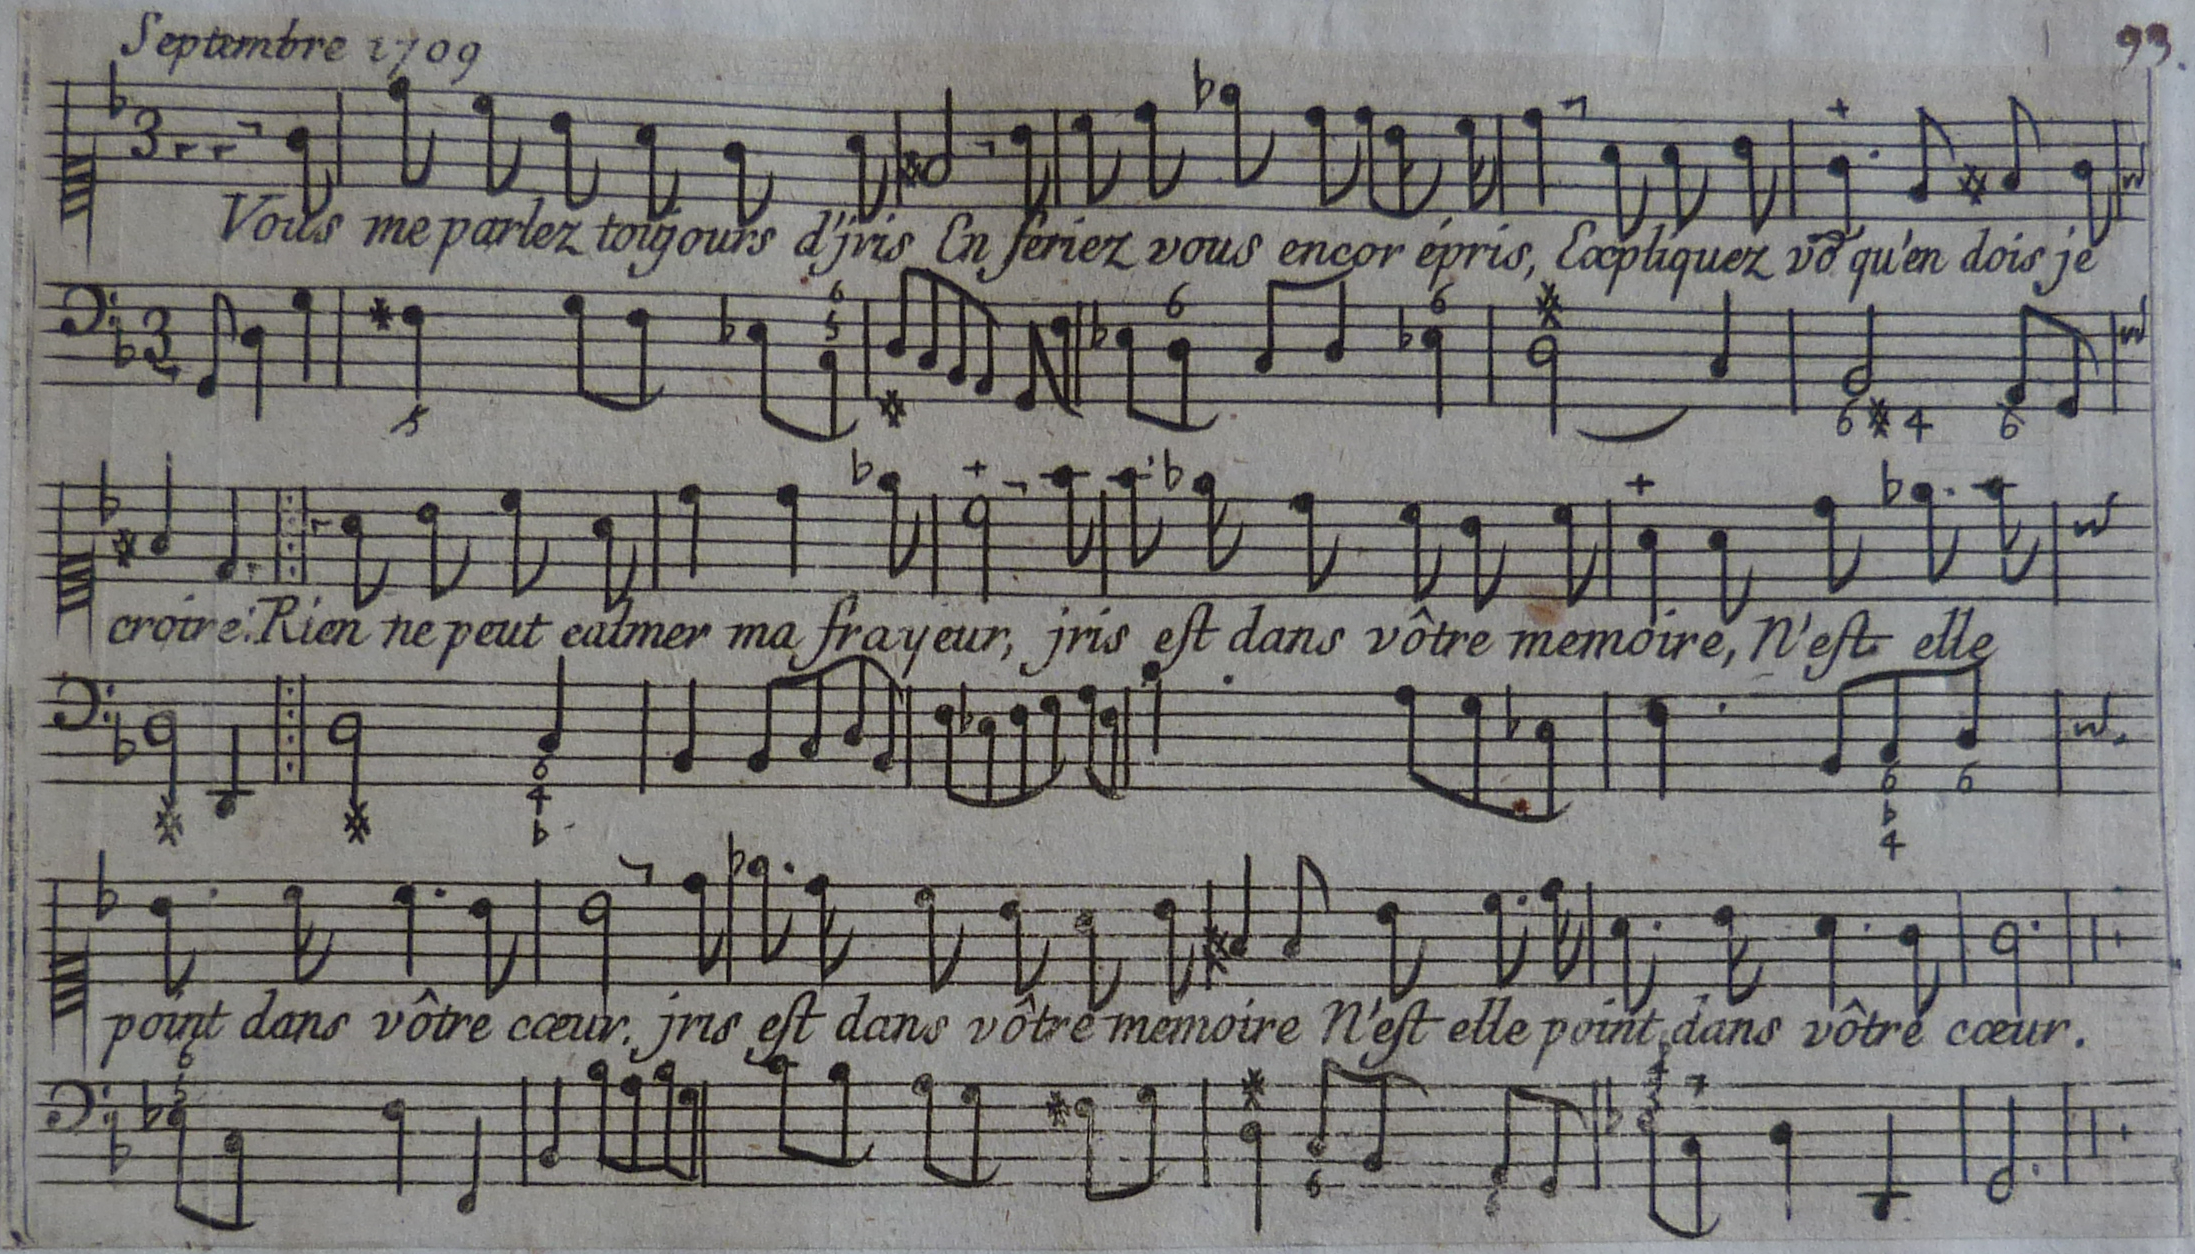 Septembre 1709
93.
Vous me parlez toujours d'jris En seriez vous encor épris, Expliquez vō qu'en dois je
croire: Rien ne peut calmer ma frayeur, jris est dans vôtre memoire, N'est elle
point dans vôtre cœur. jris est dans vôtre memoire N'est elle point dans vôtre cœur.